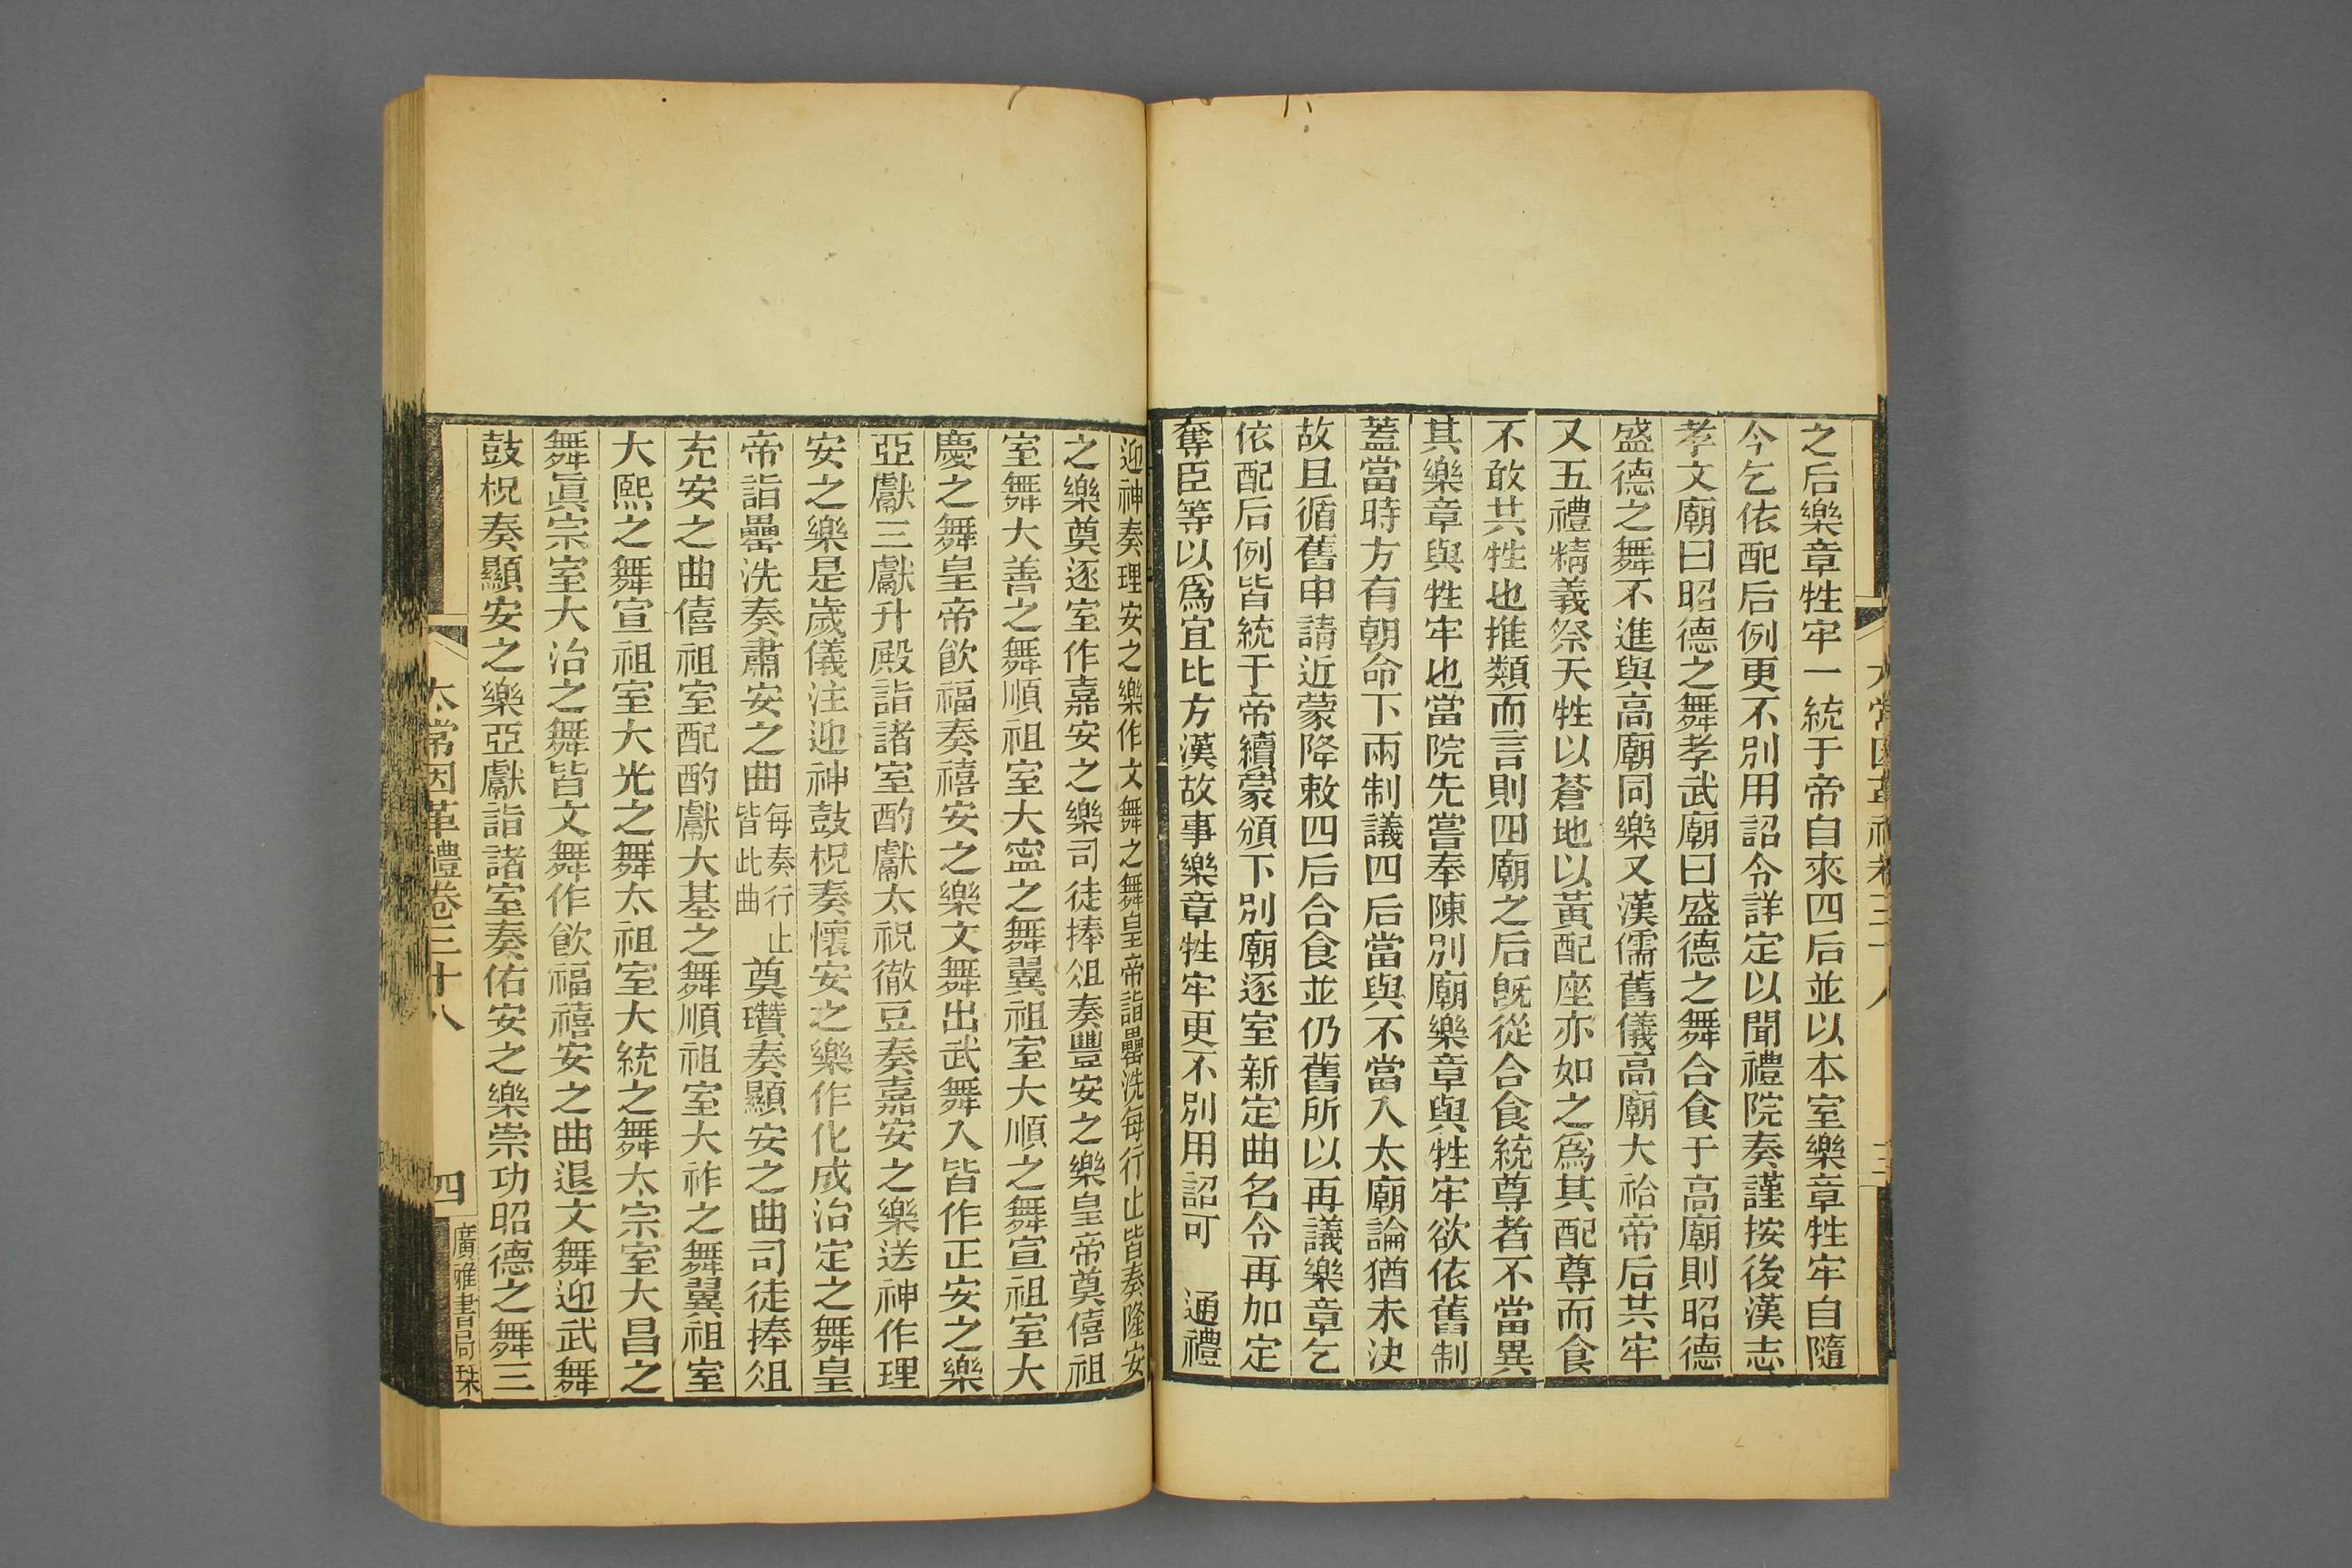 之后樂章牲牢一統于帝自來四后並以本室樂章牲牢自隨
今乞依配后例更不別用詔令詳定以聞禮院奏謹按後漢志
孝文廟曰昭德之舞孝武廟曰盛德之舞合食于高廟則昭德
盛德之舞不進與高廟同樂又漢儒舊儀高廟大祫帝后共牢
又五禮精義祭天牲以蒼地以黃配座亦如之爲其配尊而食
不敢共牲也推類而言則四廟之后旣從合食統尊者不當異
其樂章與牲牢也當院先嘗奉陳別廟樂章與牲牢欲依舊制
蓋當時方有朝命下兩制議四后當與不當入太廟論猶未決
故且循舊申請近蒙降敕四后合食並仍舊所以再議樂章乞
依配后例皆統于帝續蒙頒下別廟逐室新定曲名令再加定
奪臣等以爲宜比方漢故事樂章牲牢更不別用詔可 通禮
迎神奏理安之樂作文舞之舞皇帝詣罍洗每行止皆奏隆安
之樂奠逐室作嘉安之樂司徒捧俎奏豐安之樂皇帝奠僖祖
室舞大善之舞順祖室大寍之舞翼祖室大順之舞宣祖室大
慶之舞皇帝飮福奏禧安之樂文舞出武舞入皆作正安之樂
亞獻三獻升殿詣諸室酌獻太祝徹豆奏嘉安之樂送神作理
安之樂是歲儀注迎神鼓柷奏懷安之樂作化成治定之舞皇
帝詣罍洗奏肅安之曲每奏行止皆此曲奠瓚奏顯安之曲司徒捧俎
充安之曲僖祖室配酌獻大基之舞順祖室大祚之舞翼祖室
大熙之舞宣祖室大光之舞太祖室大統之舞太宗室大昌之
舞眞宗室大治之舞皆文舞作飮福禧安之曲退文舞迎武舞
鼓柷奏顯安之樂亞獻詣諸室奏佑安之樂崇功昭德之舞三
太常因革禮卷三十八
四
廣雅書局栞